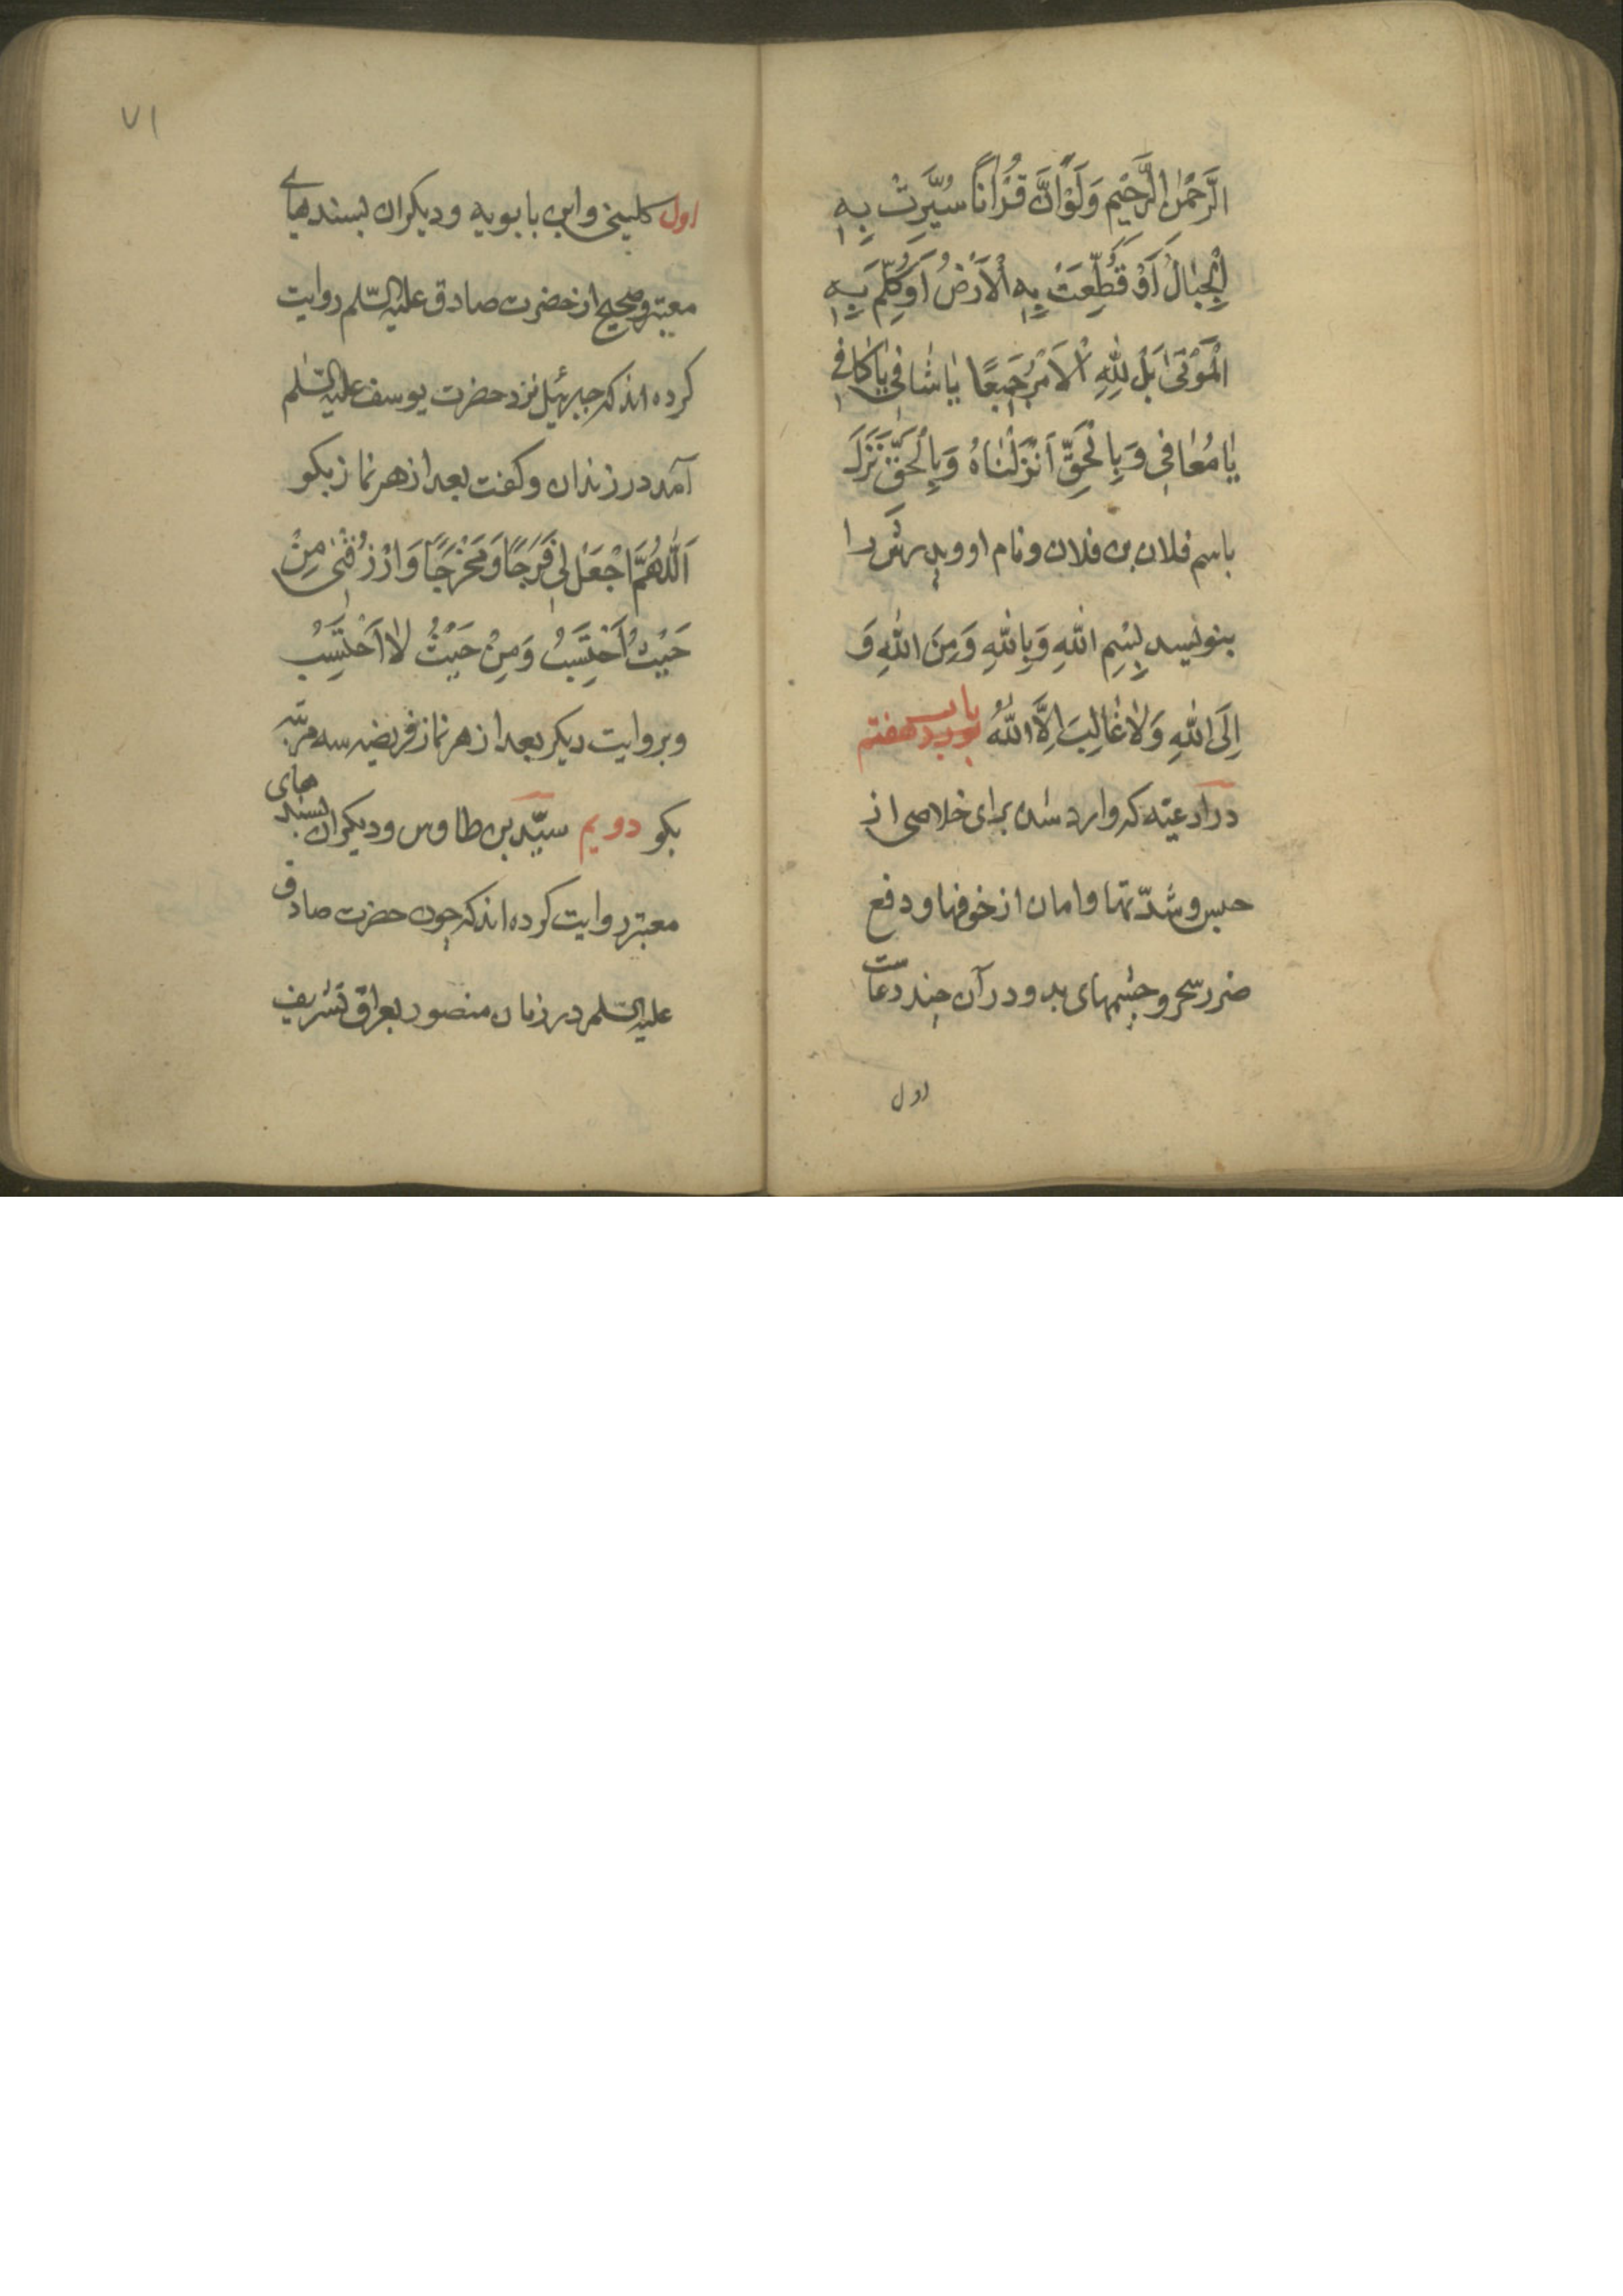 الَرَّحْمٰنِ الَرَّحیْمِ وَلَوْاَنَّ قُرْاٰنًا سُیِّرَتْ بِهِ
الْجِبٰالُ اَوْ قُطِّعَتْ بِهِ الْاَرْضُ اَوْکُلِّمَ بِهِ
الْمَوْتٰی بَلْ لِلّٰهِ الْاَمْرُ جَمیعًا یٰا شٰافی یٰا کٰافی
یٰا مُعٰافی وَ بِالْحَقِّ اَنْزَلْنٰاهُ وَ بِالْحَقِّ نَزَلَ
باسم فلان بن فلان و نام او و پدرش را
بنویسد بِسْمِ اللّٰهِ وَ بِاللّٰهِ وَ مِنَ اللّٰهِ وَ
اِلَی اللّٰهِ وَ لٰا غٰالِبَ اِلَّا اللّٰهُ باب هفتم
در ادعیّه که وارد شده برای خلاصی از
حبس و شدّتها و امان از خوفها و دفع
ضرر سحر و چشمهای بد و در آن چند دعاست
اول
۷۱
اول کلینی و ابن بابویه و دیکران بسندهای
معتبر و صحیح از حضرت صادق علیه السّلم روایت
کرده اند که جبرئیل نزد حضرت یوسف علیه السّلم
آمد در زندان و کفت بعد از هر نماز بکو
اَللّٰهُمَّ اجْعَلْ لی فَرَجًا وَ مَخْرَجًا وَ ارْزُقْنی مِنْ
حَیْثُ اَحْتَسِبُ وَ مِنْ حَیْثُ لٰا اَحْتَسِبُ
و بروایت دیکر بعد از هر نماز فریضه سه مرتبه
بکو دویم سیّد بن طاوس و دیکران بسندهای
معتبر روایت کرده اند که چون حضرت صادق
علیه السّلم در زمان منصور بعراق تشریف